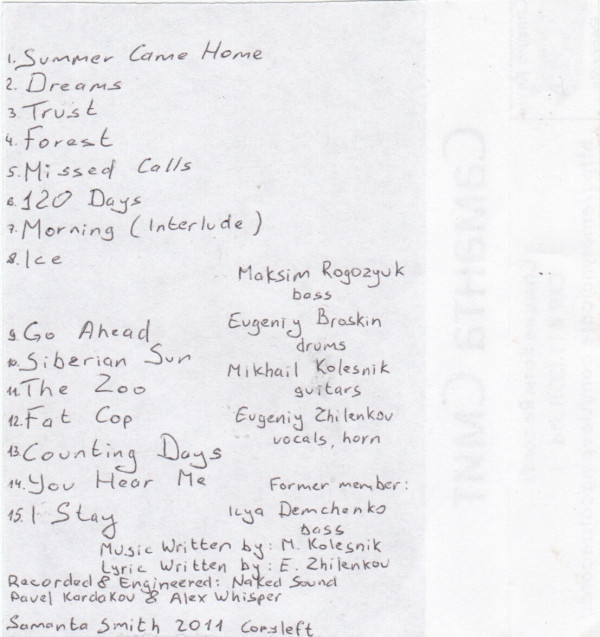 1. Summer Came Home
2. Dreams
3 Trust
4. Forest
5. Missed Calls
6. 120 Days
7. Morning (Interlude)
8. Ice
Maksim Rogozyuk
bass
9. Go Ahead
Eugeniy Braskin
drums
10. Siberian Sun
Mikhail Kolesnik
guitars
11. The Zoo
12. Fat Cop
Eugeniy Zhilenkov
vocals, horn
13 Counting Days
14. You Hear Me
Former member:
15. I Stay
Ilya Demchenko
bass
Music Written by: M. Kolesnik
Lyric Written by: E. Zhilenkov
Recorded & Engineered: Naked Sound
Pavel Kardakov & Alex Whisper
Samanta Smith 2011 Copyleft
Саманта Смит